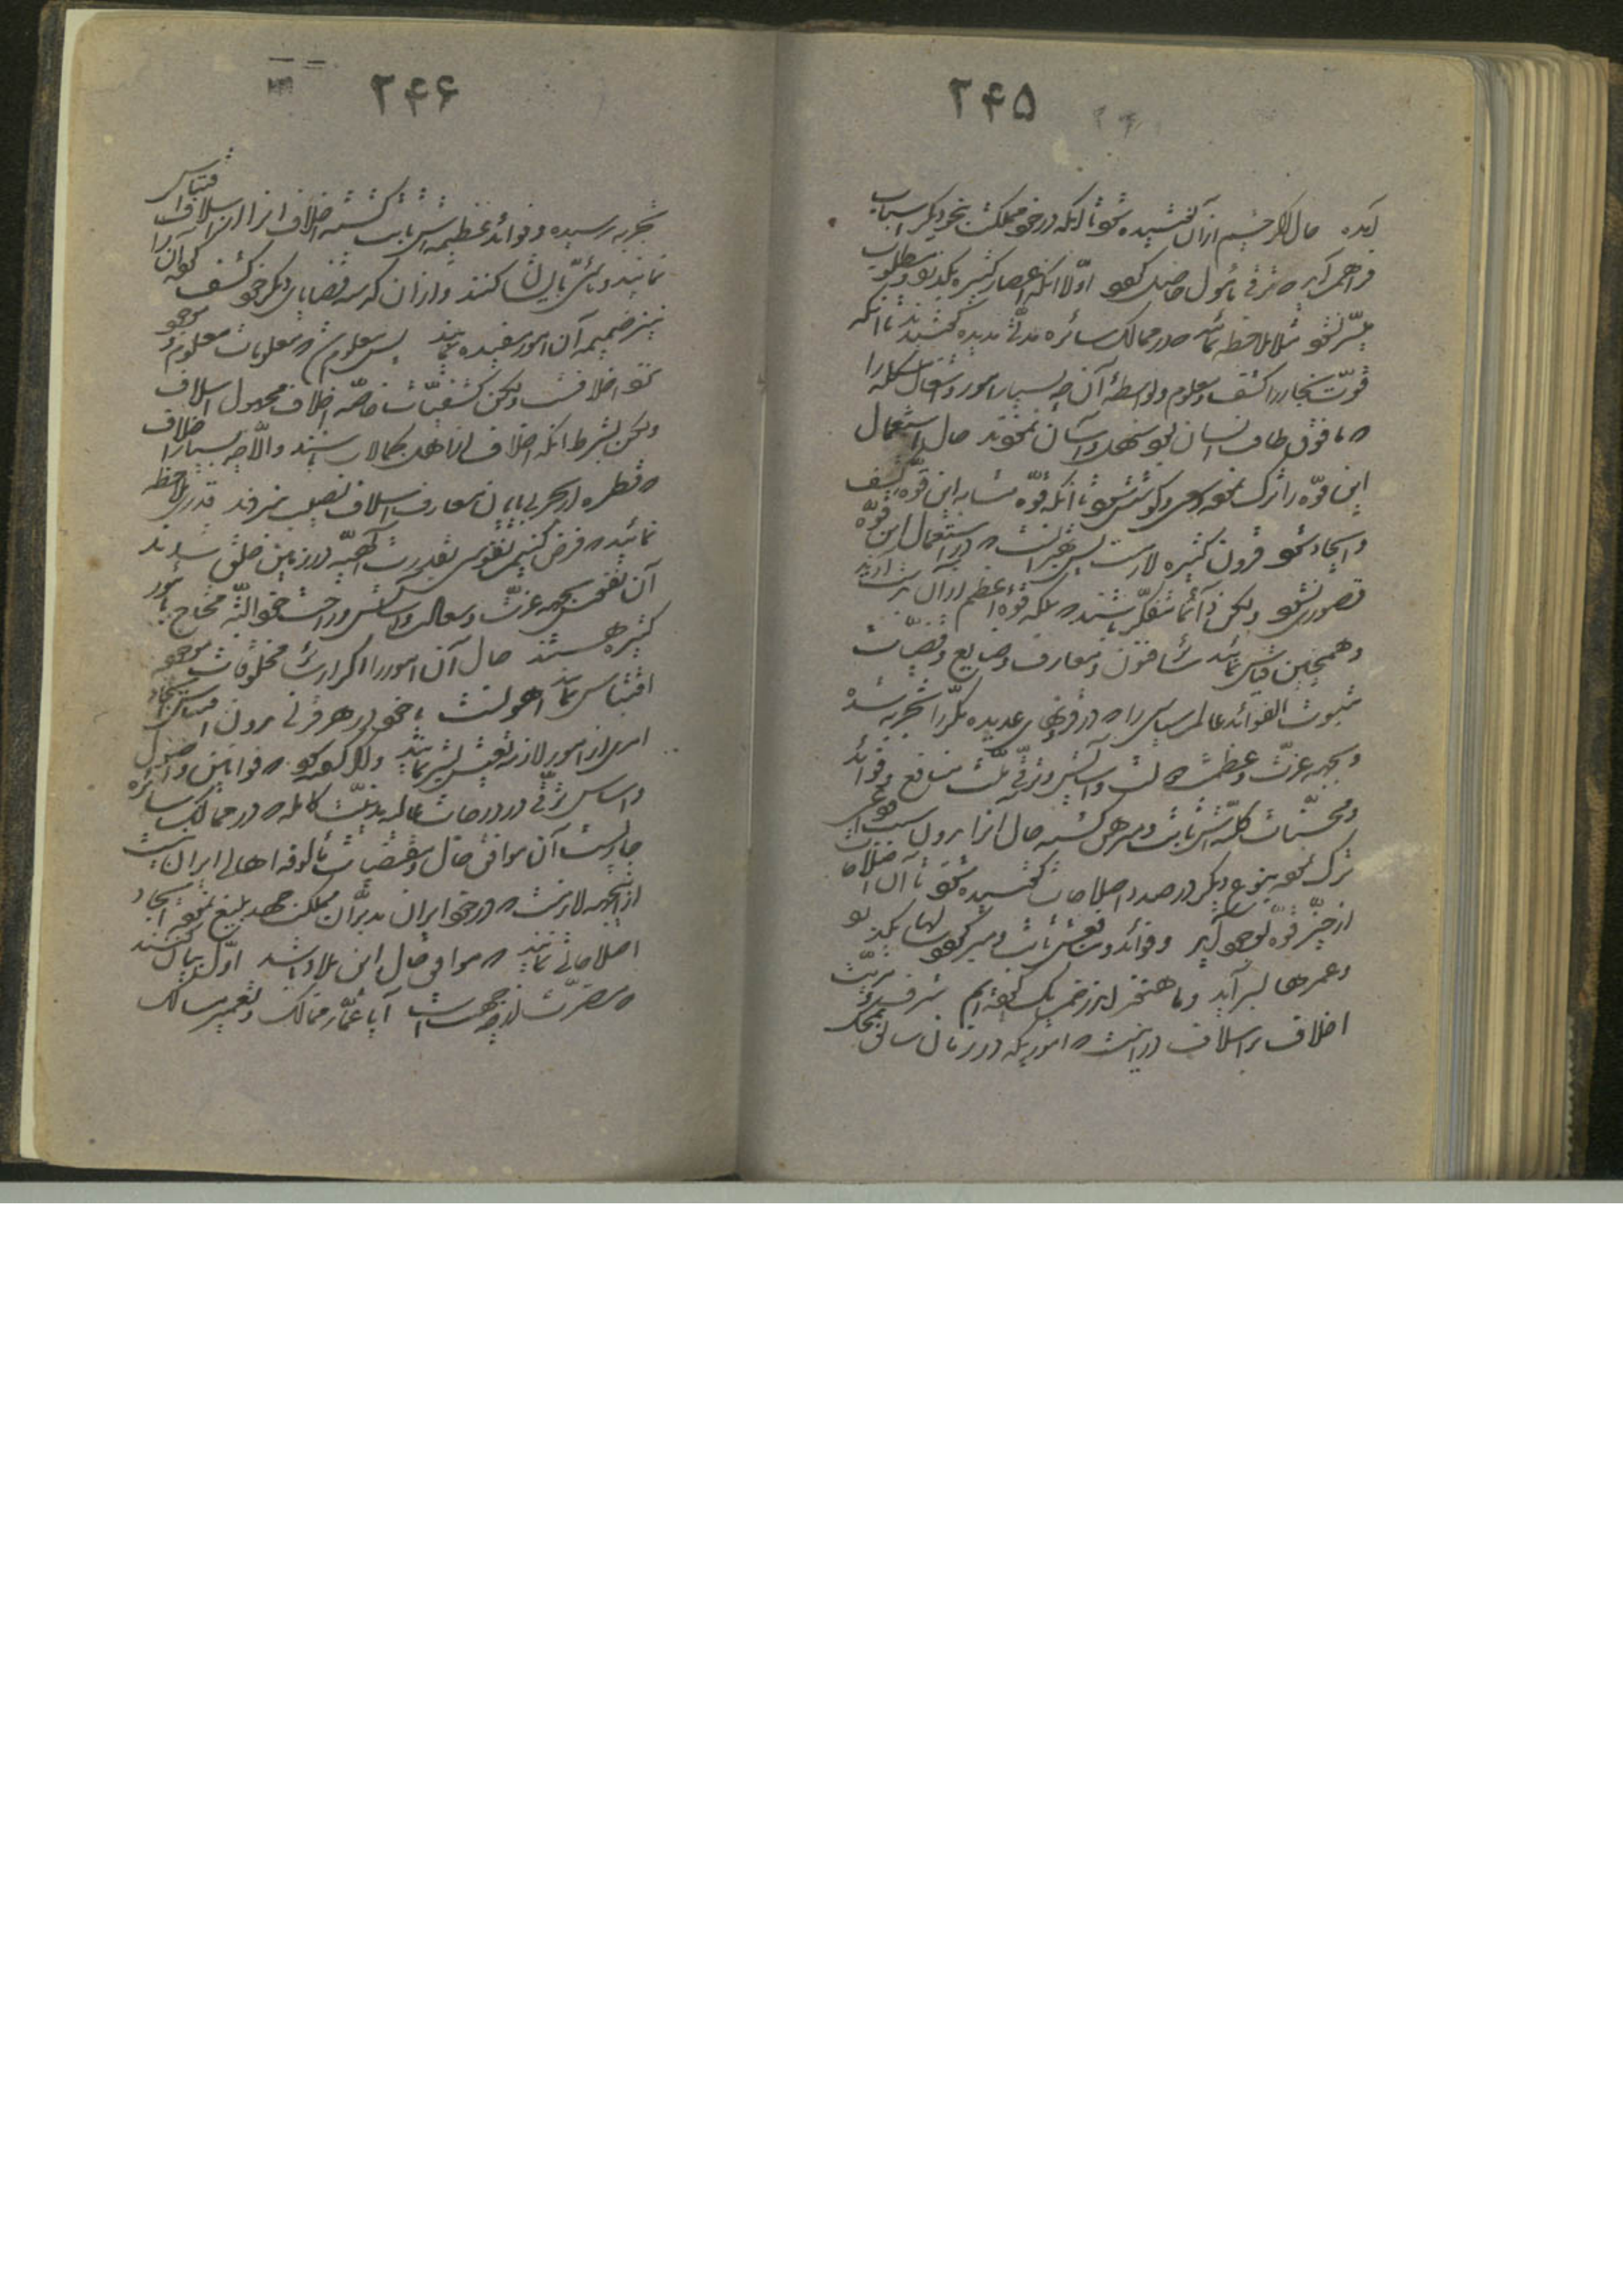 ۲۴۵
آید حال اگر چشم از آن پوشیده شود تا آنکه در خود مملکت بنحو دیگر اسباب
فراهم آید که ترقی مأمول حاصل گردد اولا آنکه اعصار کثیره بگذرد و مطلوب
میسر نشود مثلا ملاحظه نمائید که در ممالک سائره مدتی مدیده کوشیدند تا آنکه
قوت بخار را کشف و معلوم و بواسطه آن چه بسیار امور و اشغال مشکله را
که مافوق طاقت انسان بود سهل و آسان نمودند حال اگر استعمال
این قوه را ترک نموده سعی و کوشش شود تا آنکه قوه مشابه این قوه کشف
و ایجاد شود قرون کثیره لازمست پس بهتر آنست که در استعمال این قوه
قصور نشود ولکن دائما متفکر باشند که بلکه قوه اعظم از آن بدست آرند
و همچنین قیاس نمائید سائر فنون و معارف و صنایع و
مثبوت الفوائد عالم سیاسی را که در قرنهای عدیده مکررا تجربه شده
و بجهه عزت و عظمت دولت و آسایش و ترقی ملت منافع و فوائد
و محسنات کلیه‌اش ثابت و مبرهن گشته حال آنرا بدون سبب
ترک نموده بنوع دیگر در صدد اصلاحات کوشیده شود تا آن اصلاحات
از حیز قوه بوجود آید و فوائد و منافعش ثابت و مبرهن گردد سالها بگذرد
و عمرها بسر آید و ما هنوز اندر خم یک کوچه‌ایم شرف و مزیت
اخلاف بر اسلاف در اینست که اموریکه در زمان سابق بمحک
۲۴۶
تجربه رسیده و فوائد عظیمه‌اش ثابت گشته اخلاف آنرا از اسلاف اقتباس
نمایند و تأسی بایشان کنند و از آن گذشته قضایای دیگر خود کشف کرده آن را
نیز ضمیمه آن امور مفیده نمایند پس معلوم شد که معلومات و موجود
نزد اخلافست ولکن کشفیات خاصه اخلاف مجهول اسلاف
ولکن بشرط آنکه اخلاف از اهل کمالات باشند والا چه بسیار اخلاف
که قطره از بحر بی‌پایان معارف اسلاف نصیب نبرند قدری ملاحظه
نمائید که فرض کنیم نفوسی بقدرت الهیه در زمین خلق شدند
آن نفوس بجهه عزت و سعادت و آسایش و راحت خود البته محتاج بامور
کثیره هستند حال آن امور را اگر از سائر مخلوقات موجود
اقتباس نمایند اهونست یا خود در هر قرنی بدون اقتباس ایجاد
امری از امور لازمه تعیش بشر نمایند و اگر گفته شود که قوانین و اصول
و اساس ترقی در درجات عالیه مدنیت کامله که در ممالک سائره
جاریست آن موافق حال و مقتضیات مألوفه اهالی ایران نیست
از اینجهه لازمست که در خود ایران مدبران مملکت جهد بلیغ نموده ایجاد
اصلاحاتی نمایند که موافق حال این بلاد باشد اول بیان کنند
که مضرت از چه جهت است آیا عمار ممالک و تعمیر مسالک